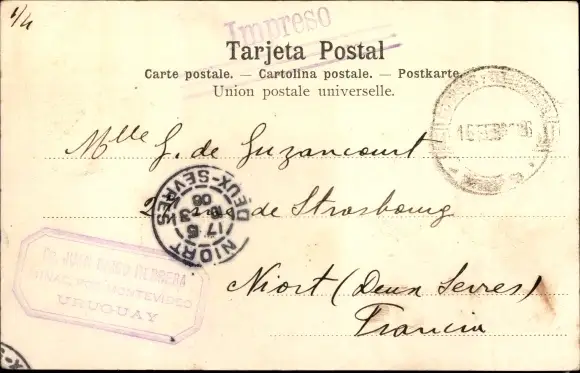 1/4
Impreso
Tarjeta Postal
Carte postale. — Cartolina postale. — Postkarte.
Union postale universelle.
Mlle G. de Guzancourt
2 rue de Strasbourg
Niort (Deux Sevres)
Francia
NIORT
DEUX-SÈVRES
17 5
3
06
MINAS, POR MONTEVIDEO
URUGUAY